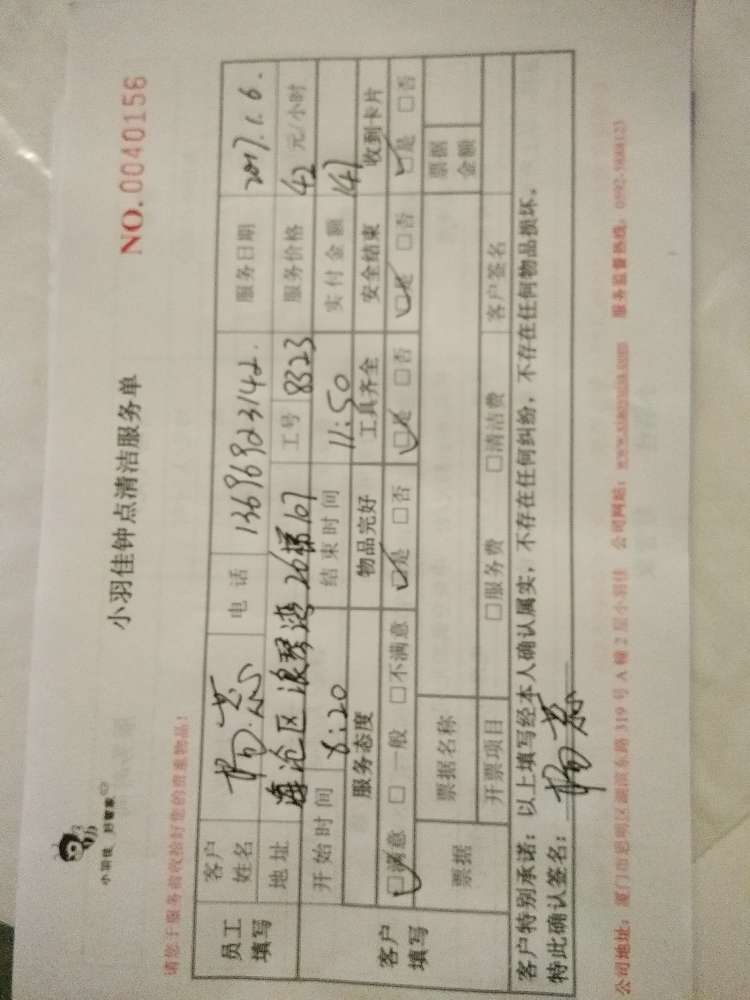 小羽佳 好管家
小羽佳钟点清洁服务单
NO.0040156
请您于服务前收拾好您的贵重物品!
员工填写 客户姓名 杨蕊 电话 13696923142. 服务日期 2017.1.6.
地址 海沧区浪琴湾26梯107 工号 8323 服务价格 42 元/小时
开始时间 8:20 结束时间 11:50 实付金额 147
客户填写 服务态度 物品完好 工具齐全 安全结束 收到卡片
☑满意 □一般 □不满意 ☑是 □否 ☑是 □否 ☑是 □否 ☑是 □否
票据 票据名称 票据金额
开票项目 □服务费 □清洁费 客户签名
客户特别承诺:以上填写经本人确认属实,不存在任何纠纷,不存在任何物品损坏。
特此确认签名:杨蕊
公司地址:厦门市思明区湖滨东路319号A幢2层小羽佳 公司网站: 服务监督热线:0592-5888123